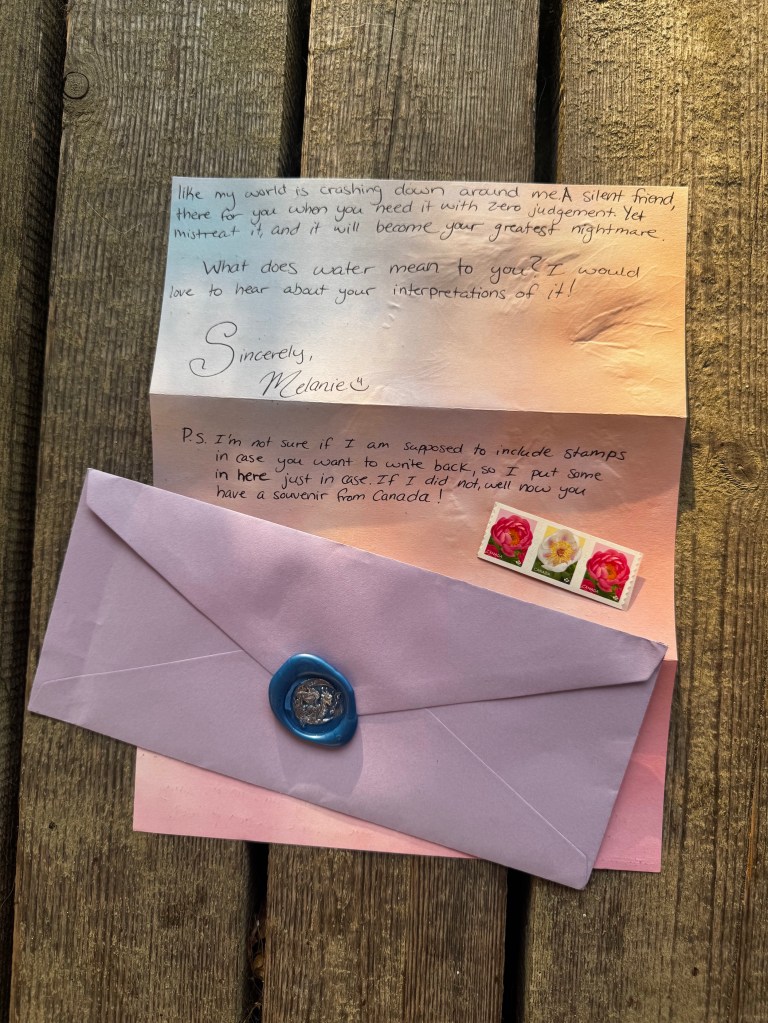 like my world is crashing down around me. A silent friend,
there for you when you need it with zero judgement. Yet
mistreat it, and it will become your greatest nightmare.
What does water mean to you? I would
love to hear about your interpretations of it!
Sincerely,
Melanie
P.S. I'm not sure if I am supposed to include stamps
in case you want to write back, so I put some
in here just in case. If I did not, well now you
have a souvenir from Canada!